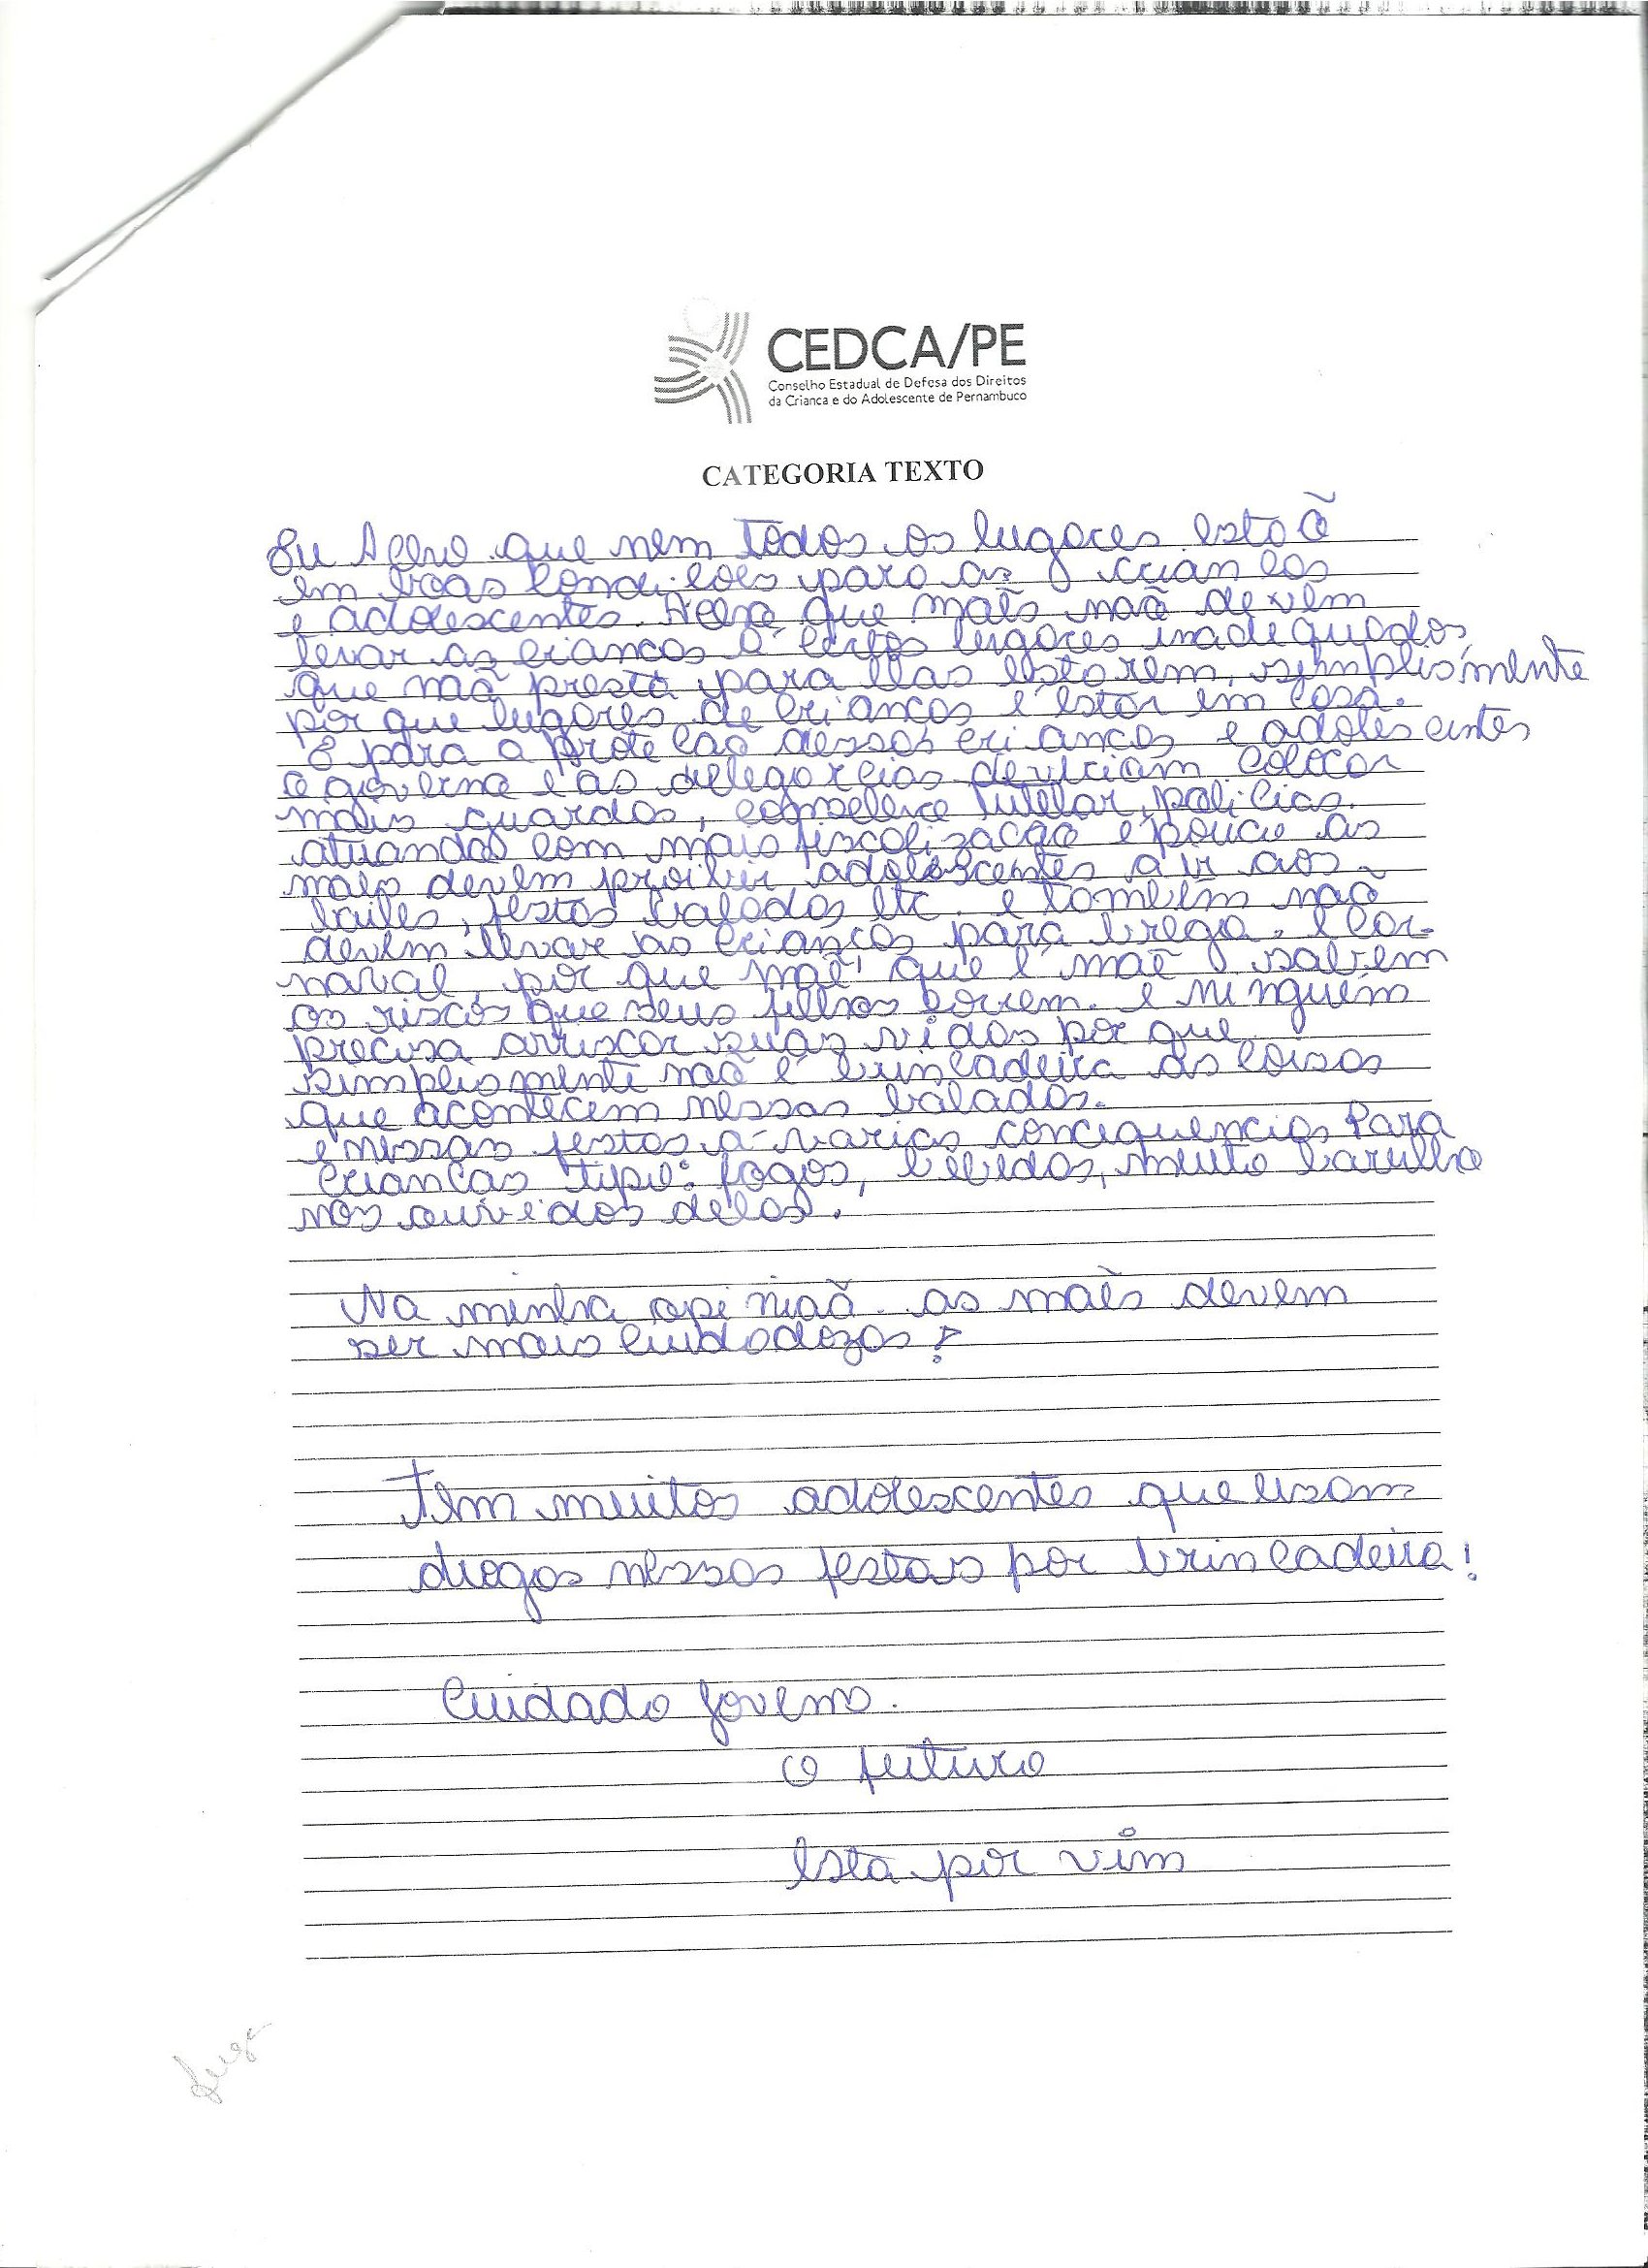 CEDCA/PE
Conselho Estadual de Defesa dos Direitos
da Crianca e do Adolescente de Pernambuco
CATEGORIA TEXTO
Eu Acho que nem todos os lugares estoã
em boas condicoes para as criancas
e adolescentes. Acho que maẽs naõ devem
levar as criancas a certos lugares inadequados,
que naõ presta para elas estarem, simplismente
por que lugares de criancas é estar em casa.
E para a protecao dessas criancas e adolescentes
o governo e as delegarcias deveriam colocar
mais guardas, conselhro tutelar, policias.
atuando com mais fiscalizacão e pouco as
maẽs devem proibir adolescentes a ir aos
bailes, festas baladas etc. e tombém naõ
devem levar as criancas para brega. e car-
naval, por que maẽ que é maẽ sabem
os riscos que seus filhos correm. e ninguém
precisa arriscar suas vidas por que
simplismente naõ é brincadeira as coisas
que acontecem nessas baladas.
e nessas festas a varias concequencias Para
criancas typo: fogos, bebidas, muito barulho
nos ouvidos delas.
Na minha opiniaõ as maẽs devem
ser mais cuidadozas!
Tem muitos adolescentes que usam
drogas nessas festas por brincadeira!
Cuidado jovems.
O futuro
Esta por vim